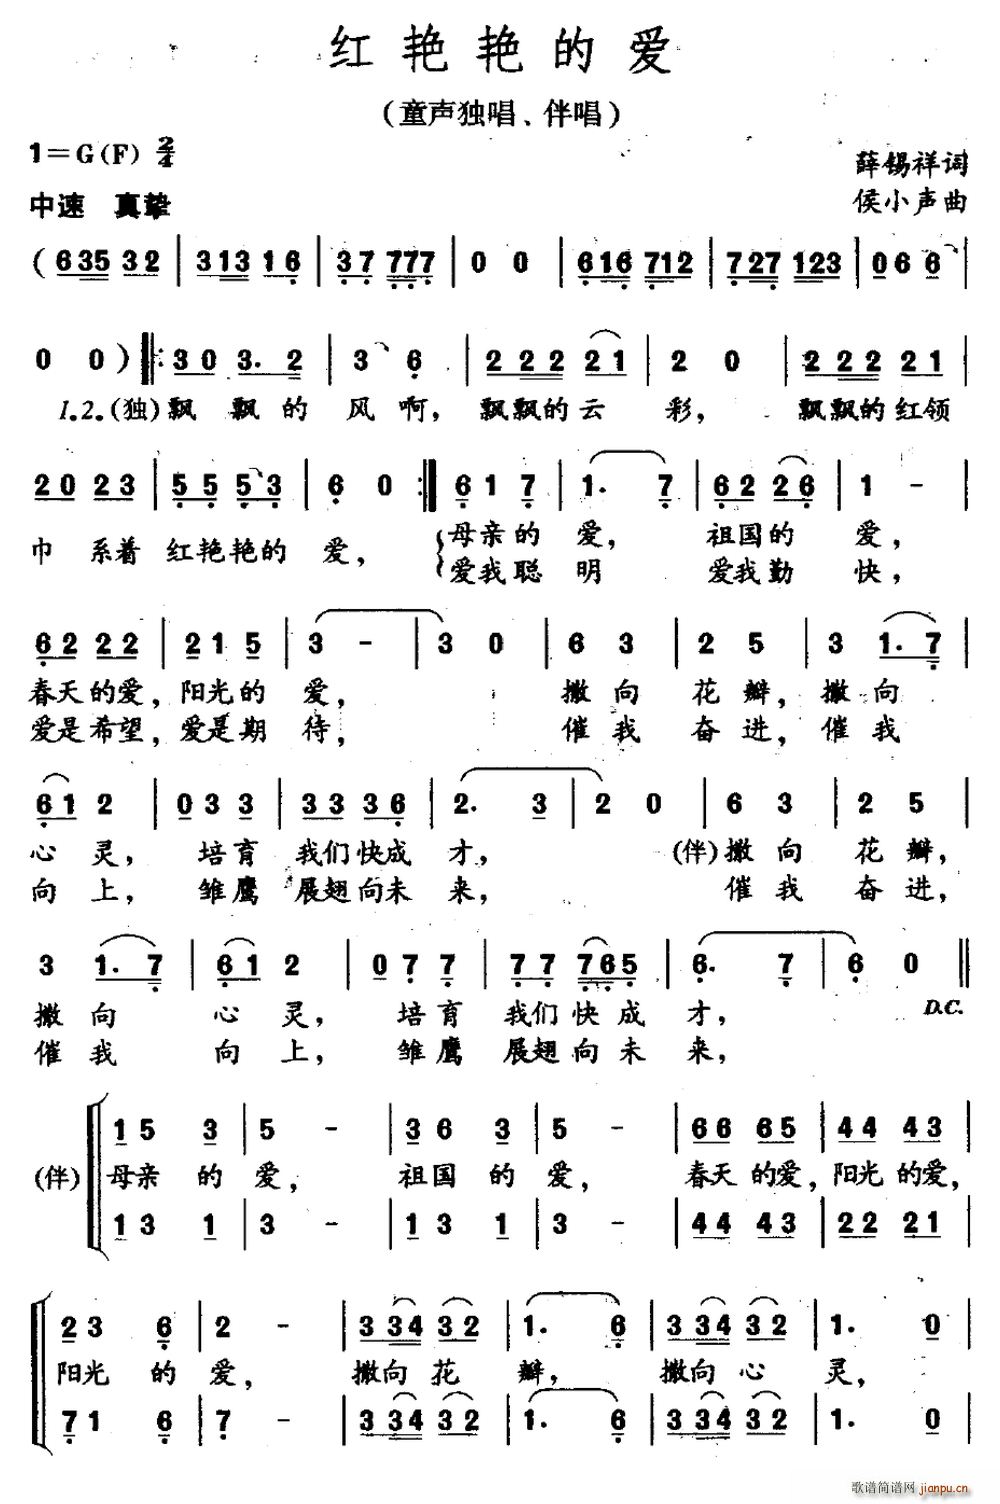 红艳艳的爱
(童声独唱、伴唱)
1=G(F) 2/4
薛锡祥词
中速 真挚
侯小声曲
(635 32 | 313 16 | 37 777 | 0 0 | 616 712 | 727 123 | 06 6 |
0 0 ) ‖: 30 3. 2 | 3 6 | 2 22 21 | 2 0 | 2 22 21 |
1.2.(独)飘 飘的 风啊, 飘飘的云 彩, 飘飘的红领
20 23 | 55 53 | 6 0 :‖ 61 7 | 1. 7 | 62 26 | 1 - |
巾 系着 红艳艳的 爱, 母亲的 爱, 祖国的 爱,
爱我聪 明 爱我勤 快,
62 22 | 21 5 | 3 - | 3 0 | 6 3 | 2 5 | 3 1. 7 |
春天的爱, 阳光的 爱, 撒向 花瓣, 撒向
爱是希望, 爱是期 待, 催我 奋进, 催我
61 2 | 03 3 | 33 36 | 2. 3 | 2 0 | 6 3 | 2 5 |
心 灵, 培育 我们快成 才, (伴)撒向 花瓣,
向 上, 雏鹰 展翅向未 来, 催我 奋进,
3 1. 7 | 61 2 | 07 7 | 77 765 | 6. 7 | 6 0 ‖
撒向 心 灵, 培育 我们快成 才, D.C.
催我 向 上, 雏鹰 展翅向未 来,
15 3 | 5 - | 36 3 | 5 - | 66 65 | 44 43 |
(伴) 母亲 的 爱, 祖国 的 爱, 春天 的爱, 阳光 的爱,
13 1 | 3 - | 13 1 | 3 - | 44 43 | 22 21 |
23 6 | 2 - | 334 32 | 1. 6 | 334 32 | 1. 0
阳光 的 爱, 撒向 花 瓣, 撒向 心 灵,
71 6 | 7 - | 334 32 | 1. 6 | 334 32 | 1. 0
歌谱简谱网 jianpu.cn